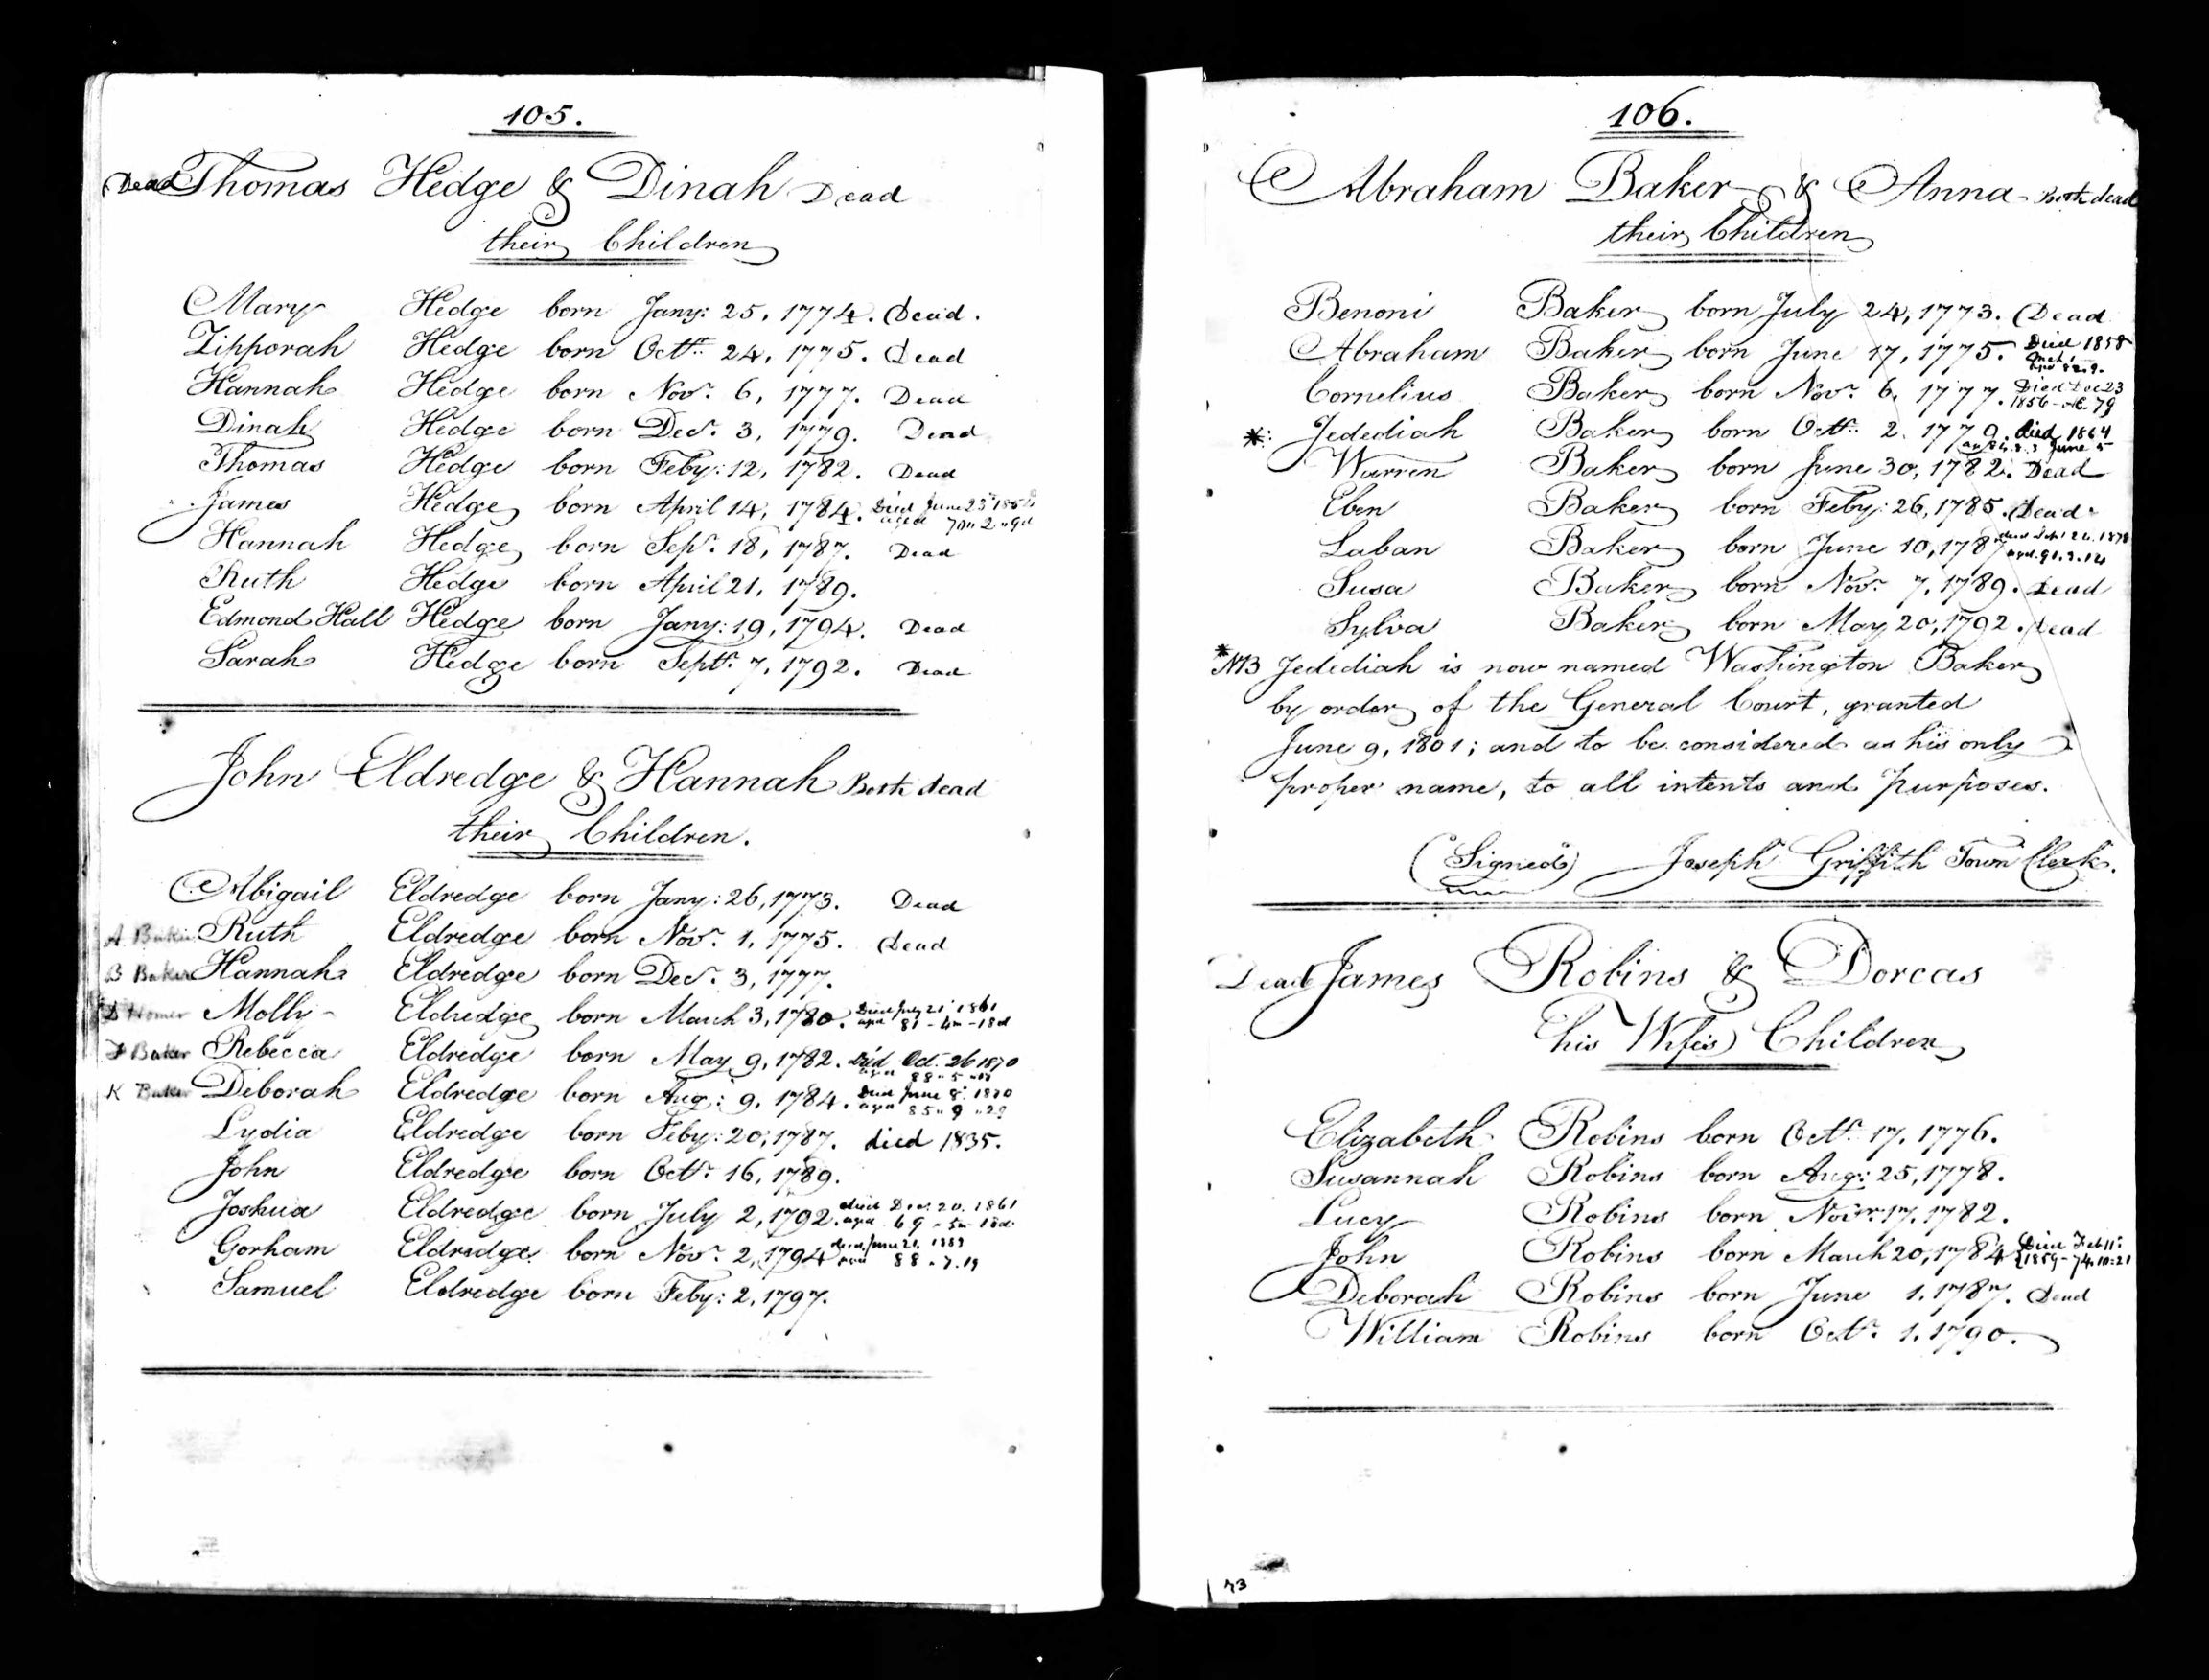 105.
Dead Thomas Hedge & Dinah Dead
their Children
Mary Hedge born Jany: 25, 1774. Dead.
Zipporah Hedge born Octr: 24, 1775. Dead
Hannah Hedge born Novr. 6, 1777. Dead
Dinah Hedge born Decr. 3, 1779. Dead
Thomas Hedge born Feby: 12, 1782. Dead
James Hedge born April 14, 1784. Died June 23d
aged 70 " 2 " 9d
Hannah Hedge born Sepr. 18, 1787. Dead
Ruth Hedge born April 21, 1789.
Edmond Hall Hedge born Jany: 19, 1794. Dead
Sarah Hedge born Septr. 7, 1792. Dead
John Eldredge & Hannah Both dead
their Children.
Abigail Eldredge born Jany: 26, 1773. Dead
A. Baker Ruth Eldredge born Novr. 1, 1775. Dead
B Baker Hannah Eldredge born Decr. 3, 1777.
D Homer Molly Eldredge born March 3, 1780. Died July 21st 1861
aged 81 - 4m - 18d
Baker Rebecca Eldredge born May 9, 1782. Died Oct. 26 1870
aged 88 " 5 " 17
K Baker Deborah Eldredge born Aug: 9, 1784. Died June 8. 1870
aged 85 " 9 " 29
Lydia Eldredge born Feby: 20, 1787. died 1835.
John Eldredge born Octr. 16, 1789.
Joshua Eldredge born July 2, 1792. died Dec. 20. 1861
aged 69 - 5m - 18d.
Gorham Eldredge born Novr. 2, 1794 died June 21. 1883
aged 88 . 7 . 19
Samuel Eldredge born Feby: 2, 1797.
106.
Abraham Baker & Anna Both dead
their Children
Benoni Baker born July 24, 1773. Dead
Abraham Baker born June 17, 1775. Died 1858
aged 82.9.
Cornelius Baker born Novr. 6, 1777. Died Dec 23
1856 - Æ. 79
*: Jedediah Baker born Octr: 2. 1779. died 1864
June 5
Warren Baker born June 30, 1782. Dead
Eben Baker born Feby: 26, 1785. Dead
Laban Baker born June 10, 1787 died Sept 24. 1878
aged. 91. 3. 14
Susa Baker born Novr. 7, 1789. Dead
Sylva Baker born May 20, 1792. Dead
*NB Jedediah is now named Washington Baker
by order of the General Court, granted
June 9, 1801; and to be considered as his only
proper name, to all intents and Purposes.
(Signed) Joseph Griffith Town Clerk.
Dead James Robins & Dorcas
his Wifes Children
Elizabeth Robins born Octr. 17, 1776.
Susannah Robins born Aug: 25, 1778.
Lucy Robins born Novr. 17, 1782.
John Robins born March 20, 1784 Died Feb 11th
1859 - 74.10.21
Deborah Robins born June 1. 1787. Dead
William Robins born Octr. 1. 1790.
73